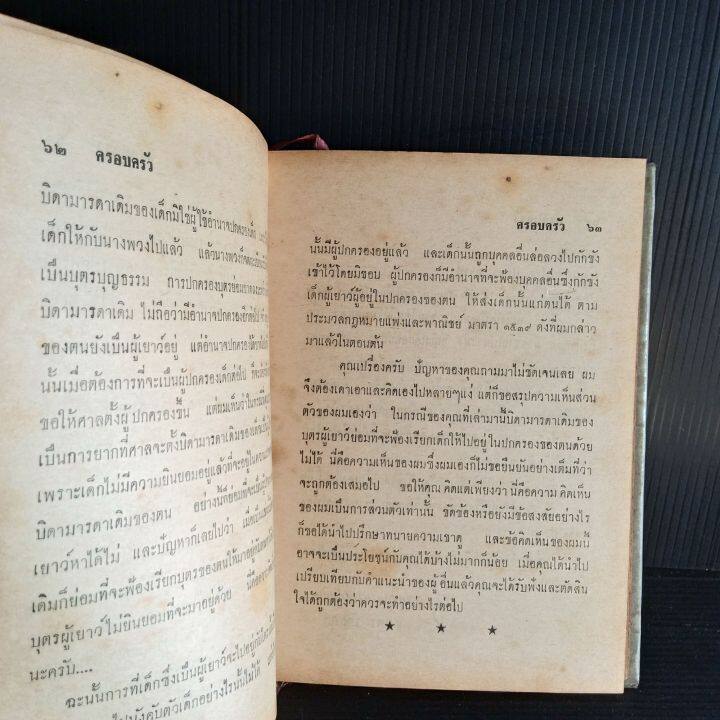 ๖๒ ครอบครัว
บิดามารดาเดิมของเด็กมิใช่ผู้ใช้อำนาจปกครอง
เด็กให้กับนางพวงไปแล้ว แล้วนางพวงก็
เป็นบุตรบุญธรรม การปกครองบุตรย่อม
บิดามารดาเดิม ไม่ถือว่ามีอำนาจปกครอง
ของตนยังเป็นผู้เยาว์อยู่ แต่อำนาจปกครอง
นั้นเมื่อต้องการที่จะเป็นผู้ปกครองเด็กต่อไป ก็
ขอให้ศาลตั้งผู้ปกครองขึ้น แต่ผมเห็นว่า
เป็นการยากที่ศาลจะตั้งบิดามารดาเดิมของเด็ก
เพราะเด็กไม่มีความยินยอมอยู่แล้วที่จะอยู่ใน
บิดามารดาเดิมของตน อย่างนี้ก็ย่อมที่จะ
เยาว์หาได้ไม่ และปัญหาก็เลยไปว่า เมื่อ
เดิมก็ย่อมที่จะฟ้องเรียกบุตรของตนให้มาอยู่กับ
บุตรผู้เยาว์ไม่ยินยอมที่จะมาอยู่ด้วย
นะครับ....
ฉะนั้นการที่เด็กซึ่งเป็นผู้เยาว์จะไปอยู่กับ
บังคับตัวเด็กอย่างไรนั้นไม่ได้
ครอบครัว ๖๓
นั้นมีผู้ปกครองอยู่แล้ว และเด็กนั้นถูกบุคคลอื่นล่อลวงไปกักขัง
เข้าไว้โดยมิชอบ ผู้ปกครองก็มีอำนาจที่จะฟ้องบุคคลอื่นซึ่งกักขัง
เด็กผู้เยาว์ผู้อยู่ในปกครองของตน ให้ส่งเด็กนั้นแก่ตนได้ ตาม
ประมวลกฎหมายแพ่งและพาณิชย์ มาตรา ๑๕๓๙ ดังที่ผมกล่าว
มาแล้วในตอนต้น
คุณเปรื่องครับ ปัญหาของคุณถามมาไม่ชัดเจนเลย ผม
จึงต้องเดาเอาและคิดเองไปหลายๆแง่ แต่ก็ขอสรุปความเห็นส่วน
ตัวของผมเองว่า ในกรณีของคุณที่เล่ามานี้บิดามารดาเดิมของ
บุตรผู้เยาว์ย่อมที่จะฟ้องเรียกเด็กให้ไปอยู่ในปกครองของตนด้วย
ไม่ได้ นี่คือความเห็นของผมซึ่งผมเองก็ไม่ขอยืนยันอย่างเต็มที่ว่า
จะถูกต้องเสมอไป ขอให้คุณคิดแต่เพียงว่านี่คือความคิดเห็น
ของผมเป็นการส่วนตัวเท่านั้น ขัดข้องหรือยังมีข้อสงสัยอย่างไร
ก็ขอได้นำไปปรึกษาทนายความเขาดู และข้อคิดเห็นของผมนี้
อาจจะเป็นประโยชน์กับคุณได้บ้างไม่มากก็น้อย เมื่อคุณได้นำไป
เปรียบเทียบกับคำแนะนำของผู้อื่นแล้วคุณจะได้รับฟังและตัดสิน
ใจได้ถูกต้องว่าควรจะทำอย่างไรต่อไป
★ ★ ★